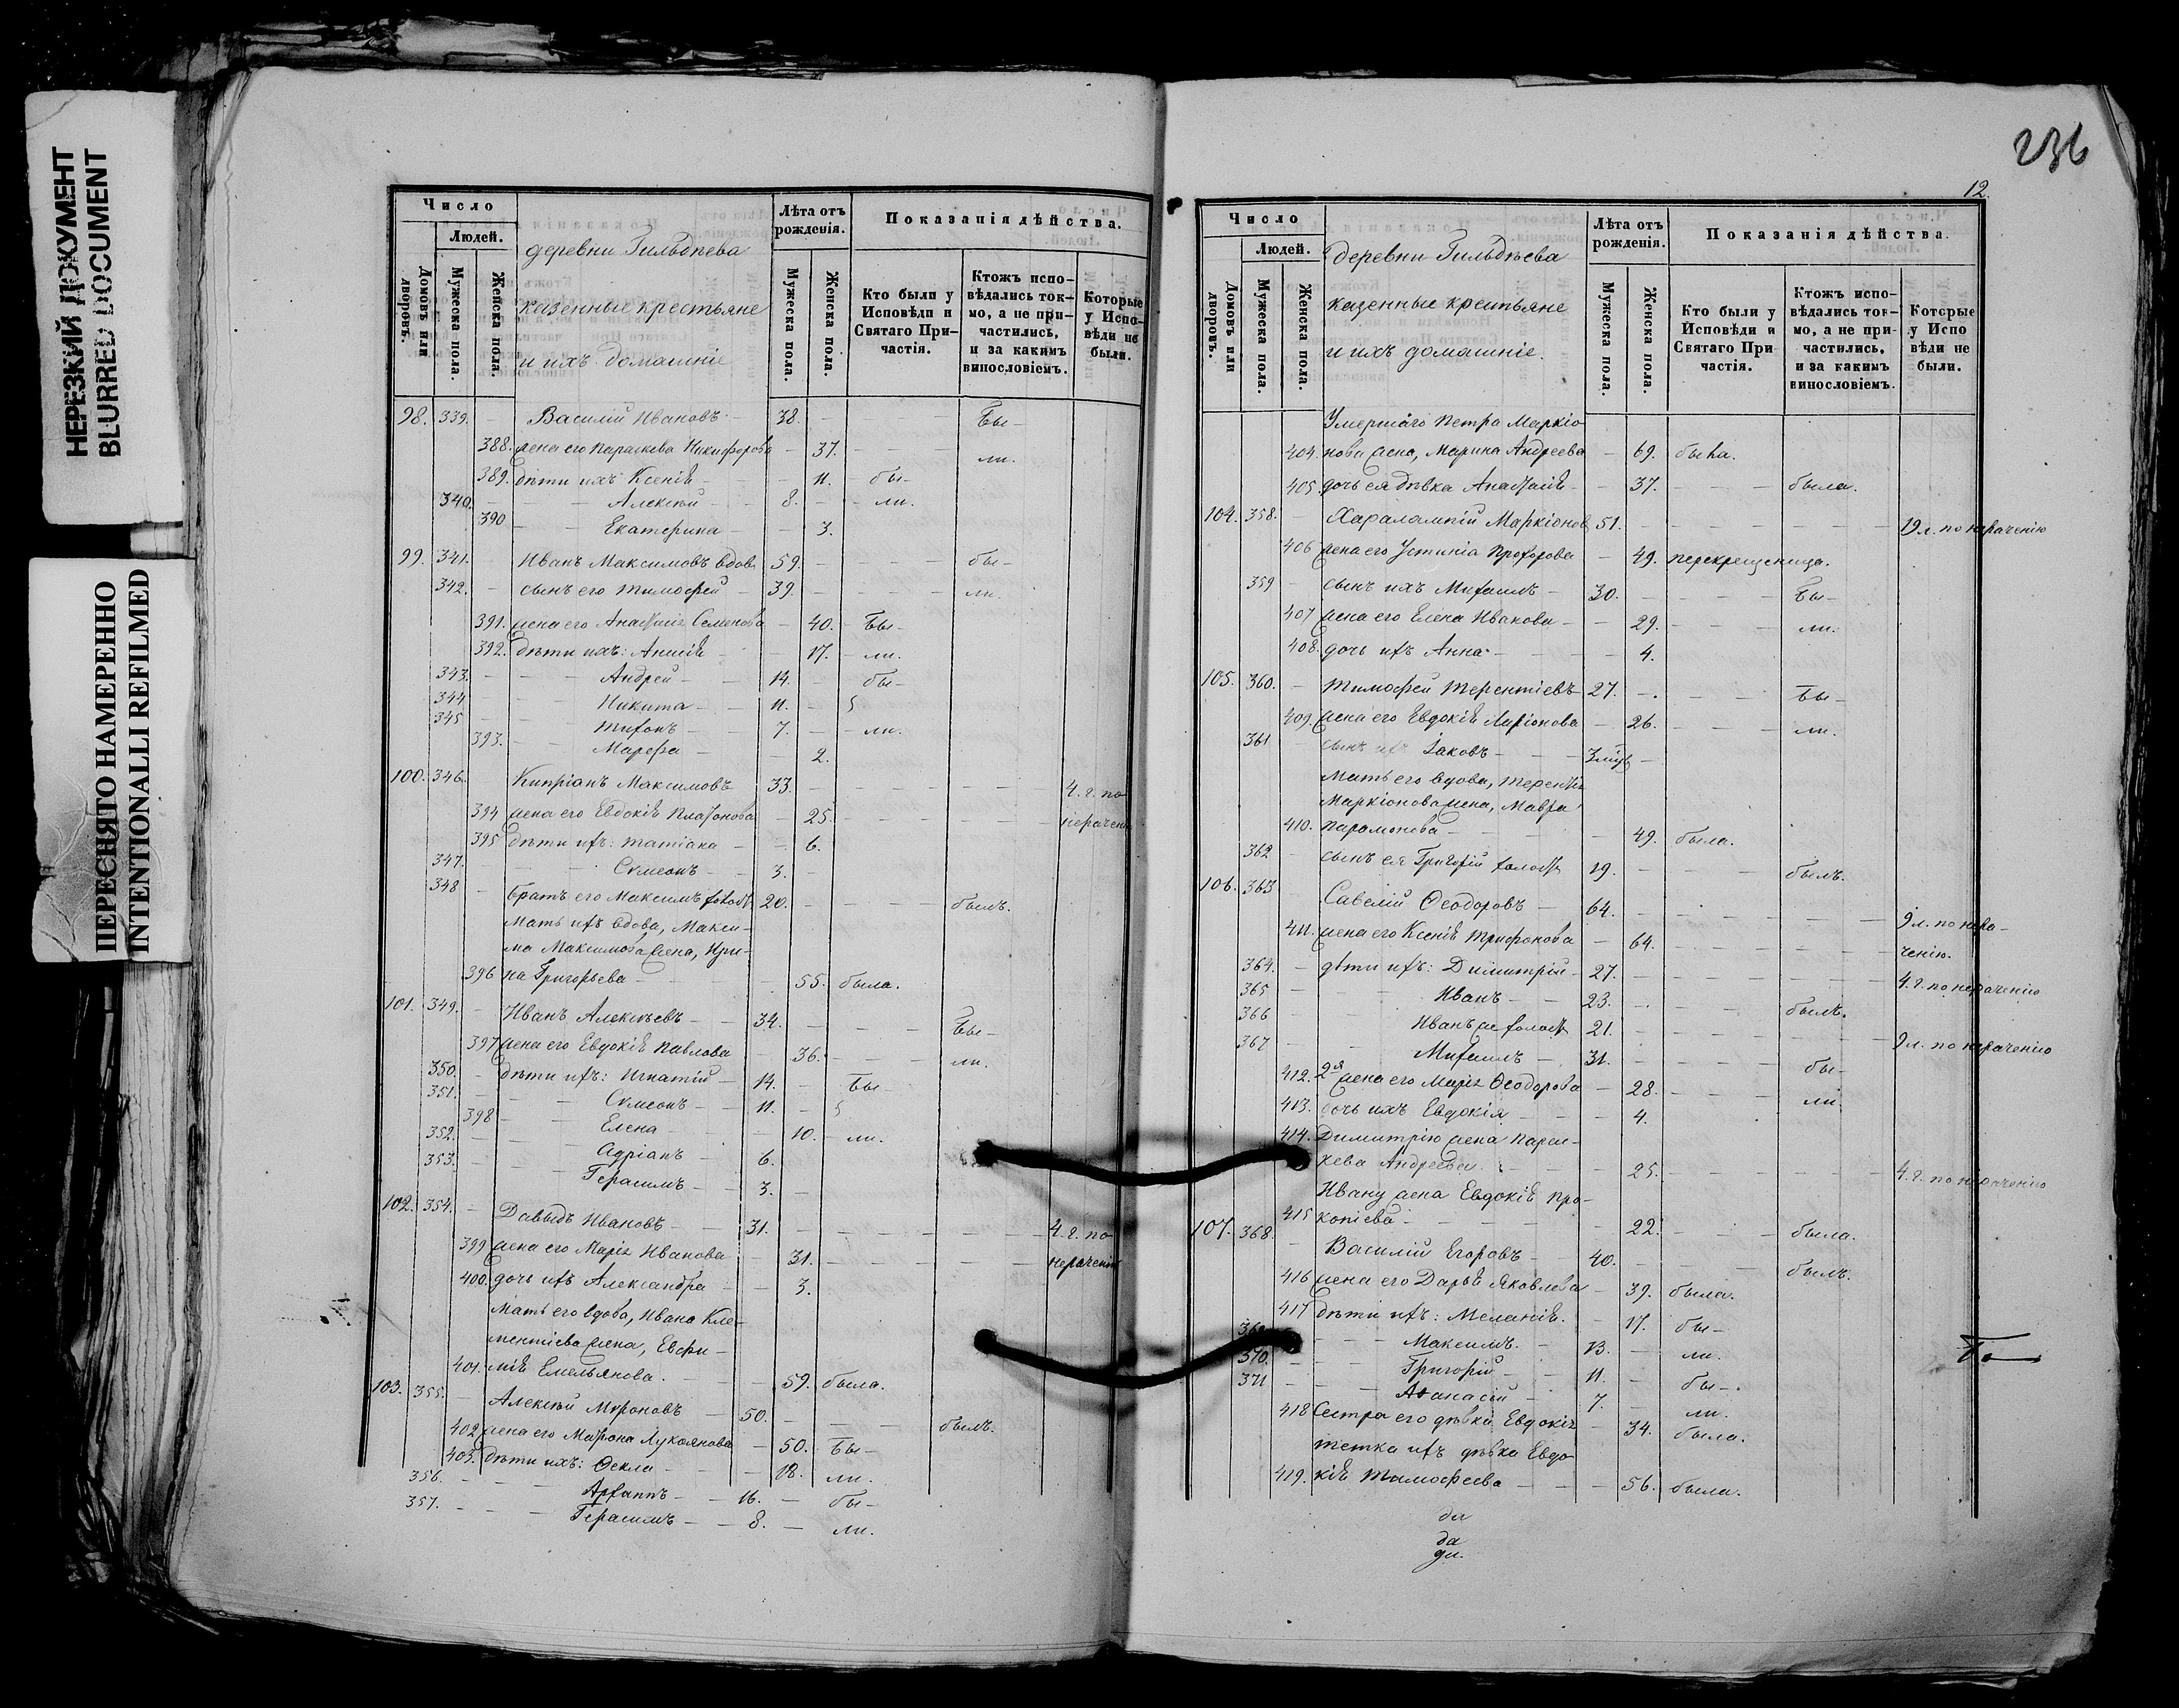 НЕРЕЗКИЙ ДОКУМЕНТ
BLURRED DOCUMENT
ПЕРЕСНЯТО НАМЕРЕННО
INTENTIONALLI REFILMED
Число
Людей.
Домовъ или дворовъ.
Мужеска пола.
Женска пола.
деревни Гильдѣева
казенные крестьяне
и ихъ домашніе
Лѣта отъ рожденія.
Мужеска пола.
Женска пола.
Показанія дѣйства.
Кто были у Исповѣди и Святаго При-частія.
Ктожъ испо-вѣдались ток-мо, а не при-частились, и за какимъ винословіемъ.
Которые у Испо-вѣди не были.
98. 339. Василій Ивановъ 38. Бы-
388. жена его Параскева Никифорова 37. ли.
389. дѣти ихъ Ксенія 11. бы-
340. Алексѣй 8. ли.
390 Екатерина 3.
99. 341. Иванъ Максимовъ вдов 59. бы-
342. сынъ его Тимофей 39. ли.
391. жена его Анастасія Семенова 40. Бы-
392. дѣти ихъ: Анисія 17. ли.
343. Андрей 14. бы-
344 Никита 11.
345 Тихонъ 7. ли.
393. Марфа 2.
100. 346. Кипріанъ Максимовъ 33. 4. г. по
394 жена его Евдокія Платонова 25. нерачен
395 дѣти ихъ: Татіана 6.
347. Сѵмеонъ 3.
348 Братъ его Максимъ холост 20. былъ.
Мать ихъ вдова, Макси-
ма Максимова жена, Ири-
396 на Григорьева 55. была.
101. 349. Иванъ Алексѣевъ 34. Бы-
397 жена его Евдокія Павлова 36. ли.
350. дѣти ихъ: Игнатій 14. Бы-
351. Сѵмеонъ 11.
398 Елена 10. ли.
352. Адріанъ 6.
353. Герасимъ 3.
102. 354. Давыдъ Ивановъ 31. 4. г. по
399 жена его Марія Иванова 31. нераченію
400. дочь ихъ Александра 3.
Мать его вдова, Ивана Кле-
ментіева жена, Евфи-
401. мія Емельянова. 59. была.
103. 355. Алексѣй Мѵроновъ 50. былъ.
402 жена его Матрона Лукоянова 50. Бы-
403. дѣти ихъ: Ѳекла 18. ли.
356. Архиппъ 16. бы-
357. Герасимъ 8. ли.
236
12.
Число
Людей.
Домовъ или дворовъ.
Мужеска пола.
Женска пола.
деревни Гильдѣева
казенные крестьяне
и ихъ домашніе.
Лѣта отъ рожденія.
Мужеска пола.
Женска пола.
Показанія дѣйства.
Кто были у Исповѣди и Святаго При частія.
Ктожъ испо-вѣдались ток-мо, а не при-частились, и за какимъ винословіемъ.
Которые у Испо вѣди не были.
Умершаго Петра Маркіо
404. нова жена, Марина Андреева 69. была.
405. дочь ея дѣвка Анастасія 37. была.
104. 358. Харалампій Маркіонов 51. 19 л. по нераченію
406 жена его Устинія Прохорова 49. перекрещеница.
359 сынъ ихъ Михаилъ 30. Бы-
407 жена его Елена Иванова 29. ли.
408. дочь ихъ Анна 4.
105. 360. Тимофей Терентіевъ 27. Бы-
409. жена его Евдокія Ларіонова 26. ли.
361 сынъ ихъ Іаковъ 3 мѣс
Мать его вдова, Терентія
Маркіонова жена, Мавра
410. Парамонова 49. была.
362 сынъ ея Григорій холост 19. былъ.
106. 363 Савелій Ѳеодоровъ 64. 9 л. по нера-
411. жена его Ксенія Трифонова 64. ченію.
364. дѣти ихъ: Димитрій 27. 4. г. по нераченію
365 Иванъ 23. былъ.
366 Иванъ же холост 21. 9 л. по нераченію
367 Михаилъ 31. бы-
412. 2я жена его Марія Ѳеодорова 28. ли.
413. дочь ихъ Евдокія 4.
414. Димитрію жена Парас-
кева Андреева. 25. 4. г. по нераченію
Ивану жена Евдокія Про-
415 копіева 22. была.
107. 368. Василій Егоровъ 40. былъ.
416 жена его Дарья Яковлева 39. была.
417 дѣти ихъ: Меланія. 17. бы-
369 Максимъ. 13. ли.
370. Григорій 11. бы-
371 Аѳанасій 7. ли.
418 Сестра его дѣвка Евдокія 34. была.
тетка ихъ дѣвка Евдо
419. кія Тимофеева 56. была.
да
да